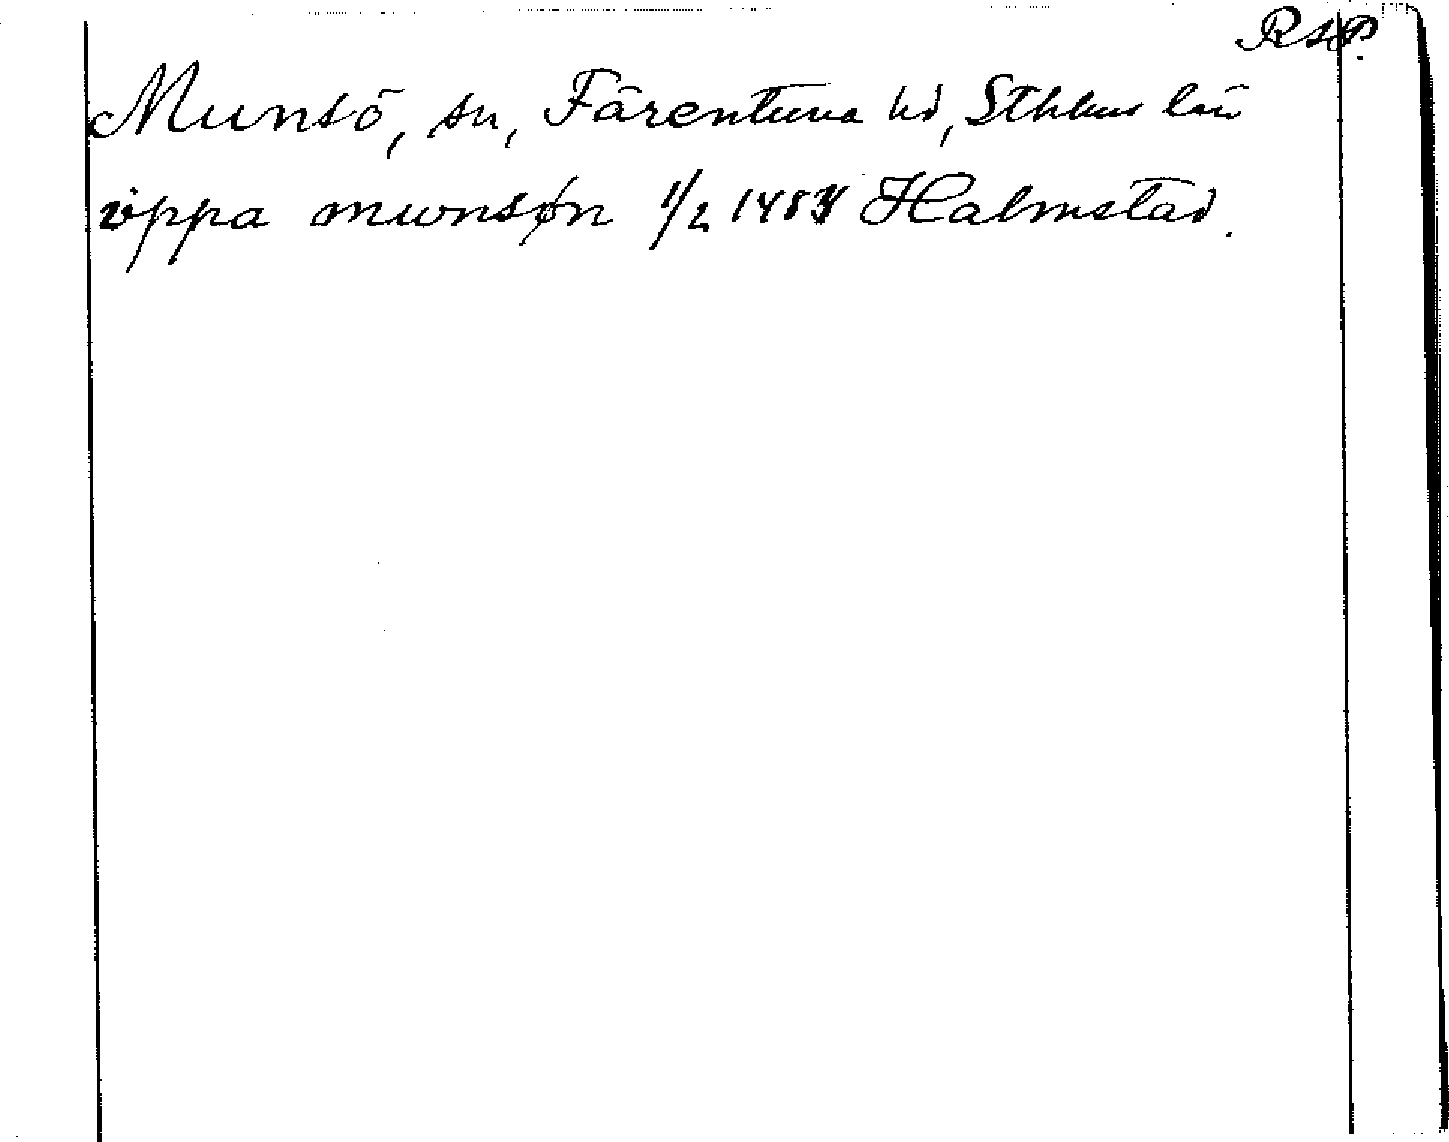 RAP.
Munsö, sn, Färentuna hd, Sthlms län
vppa mwnsøn 1/2 1484 Halmstad.